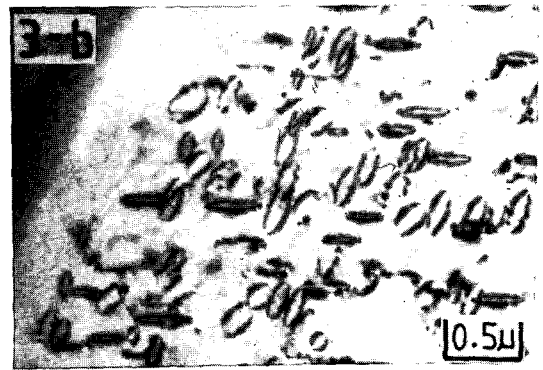 3-b
0.5μ